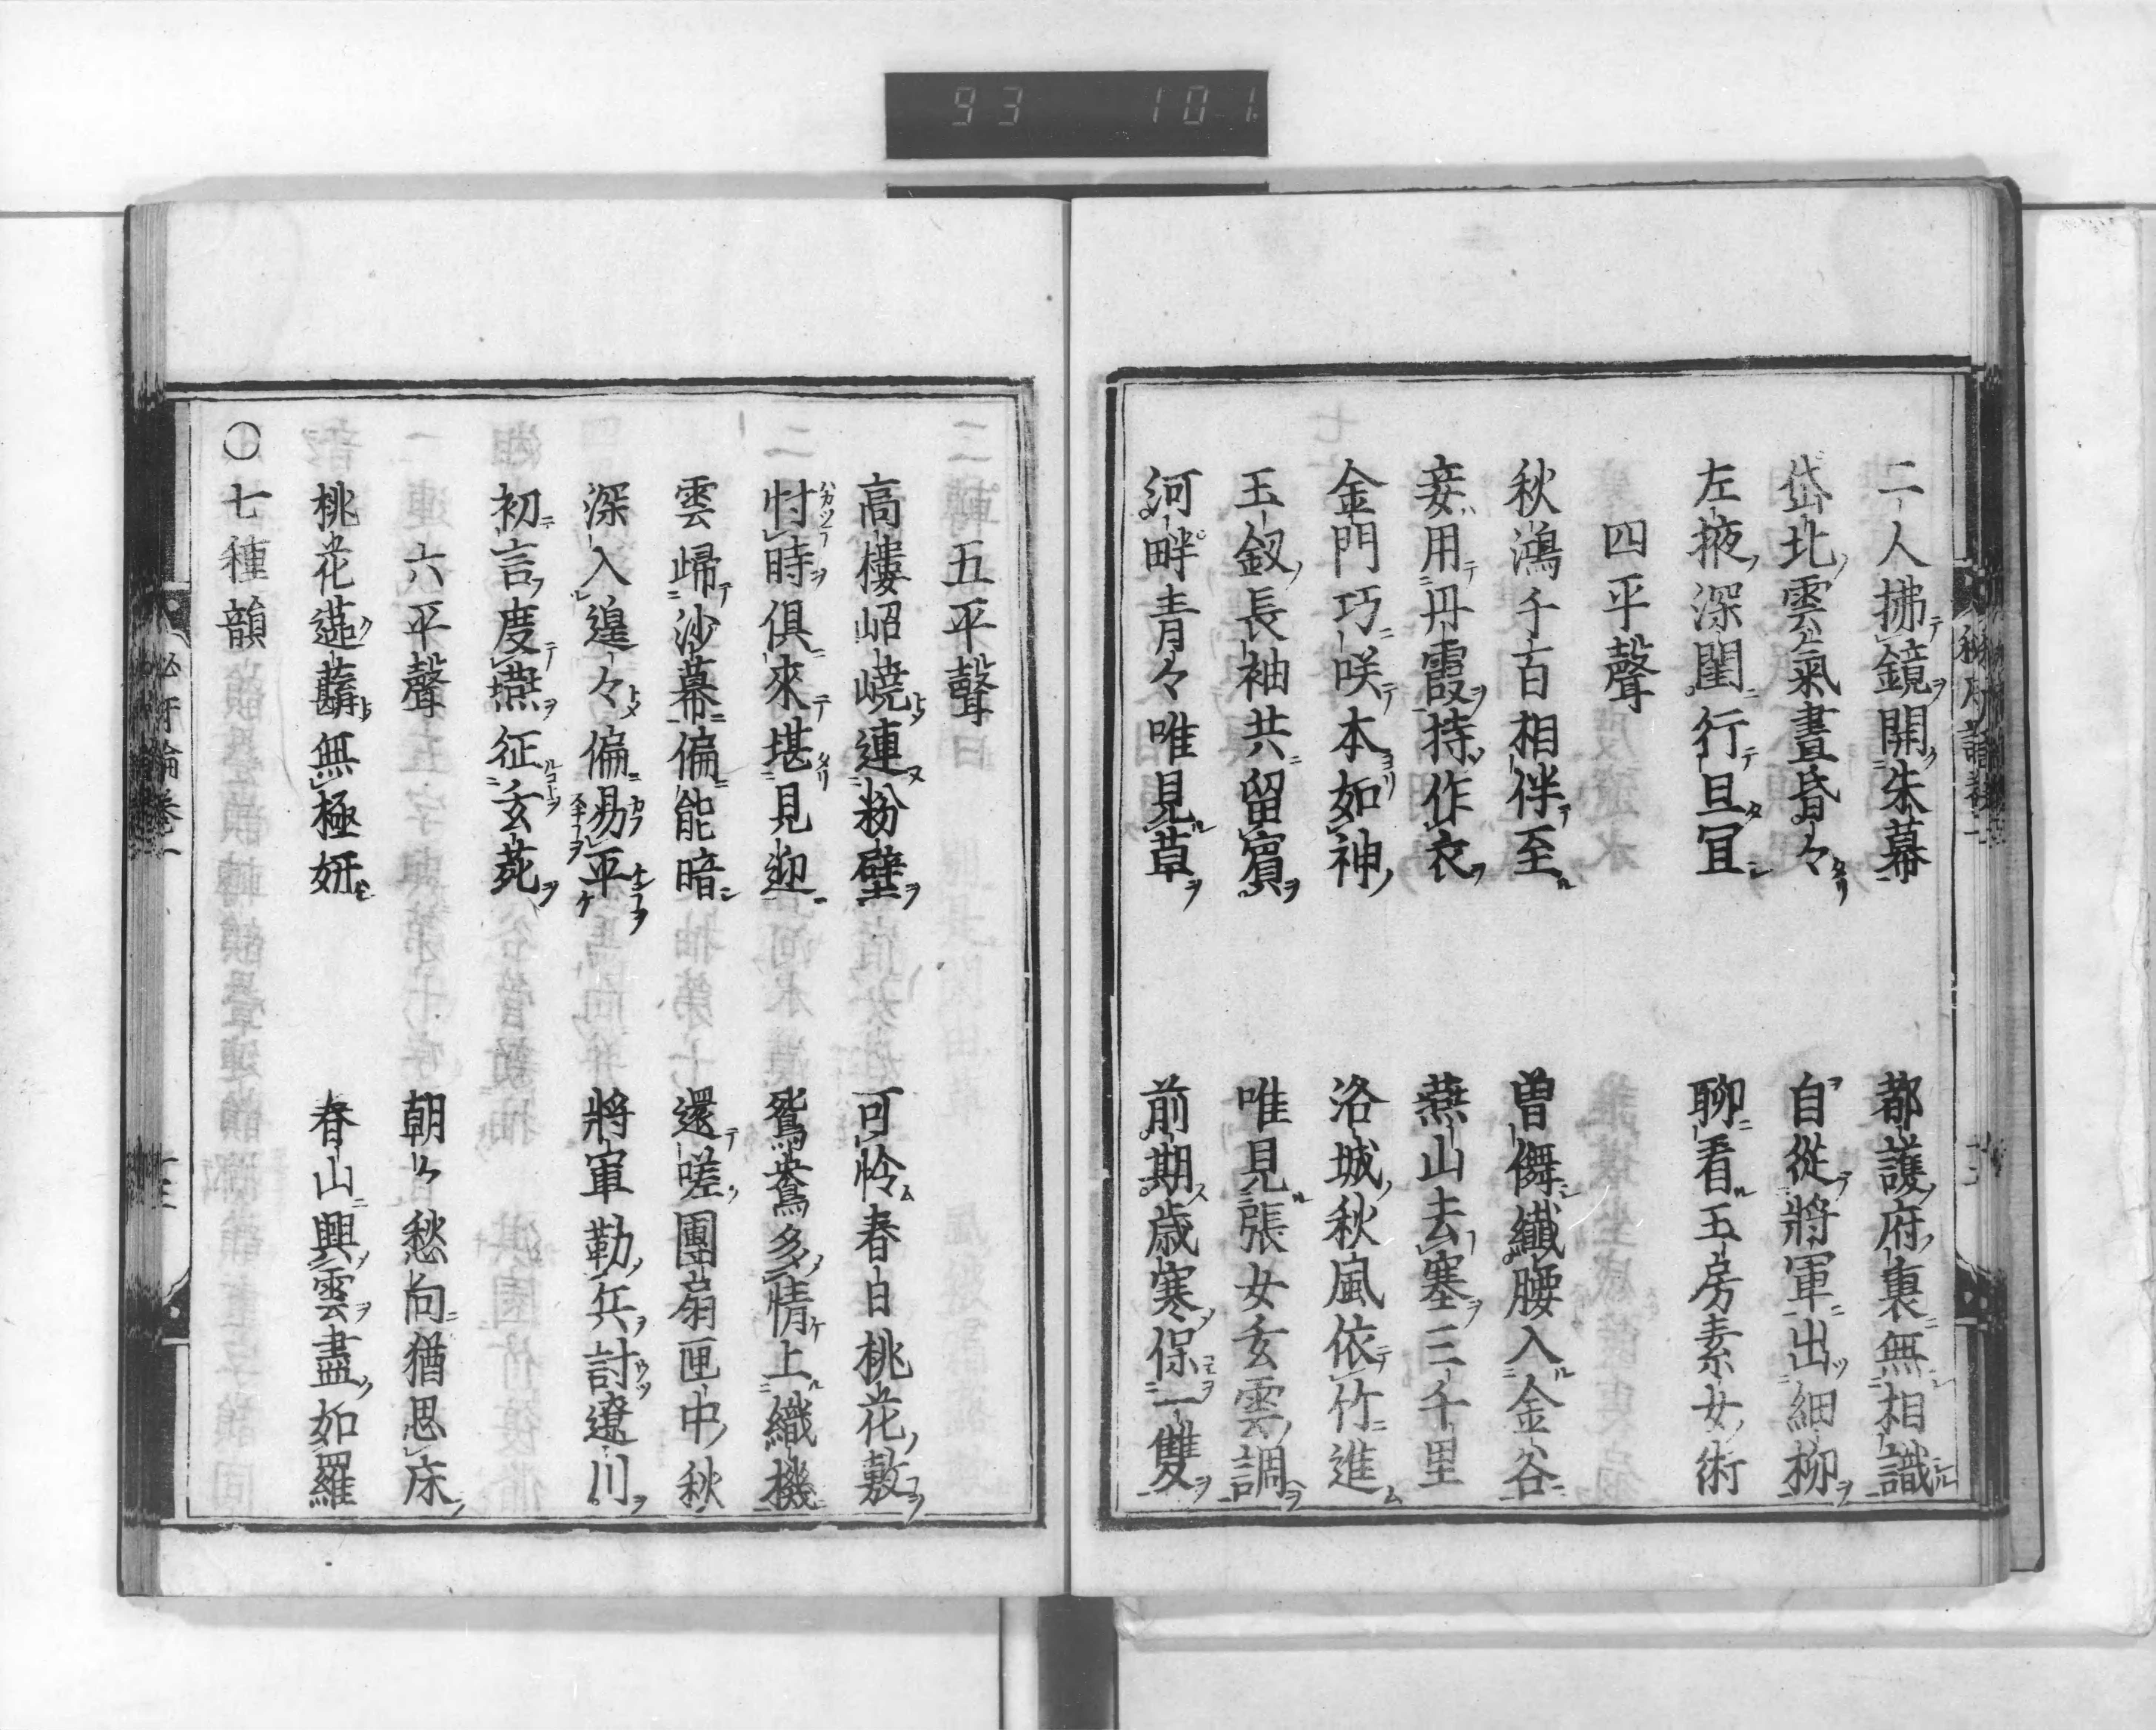 93 101
二人拂鏡開朱幕 都護府裏無相識
岱北雲氣晝昏々 自從將軍出細柳
左掖深閨行且冝 聊看玉房素女術
四平聲
秋鴻千百相伴至 曽儛纖腰入金谷
妾用丹霞持作衣 燕山去塞三千里
金門巧咲本如神 洛城秋風依竹進
玉釵長袖共留賓 唯見張女玄雲調
河畔青々唯見草 前期歳寒保一雙
五平聲
高樓岧嶢連粉壁 可怜春日桃花敷
忖時俱來堪見迎 鴛鴦多情上織機
雲歸沙幕偏能暗 還嗟團扇匣中秋
深入遑々偏易平 將軍勒兵討遼川
初言度燕征玄菟
六平聲 朝々愁向猶思床
桃花𦼮蘛無極妍 春山興雲盡如羅
〇七種韻